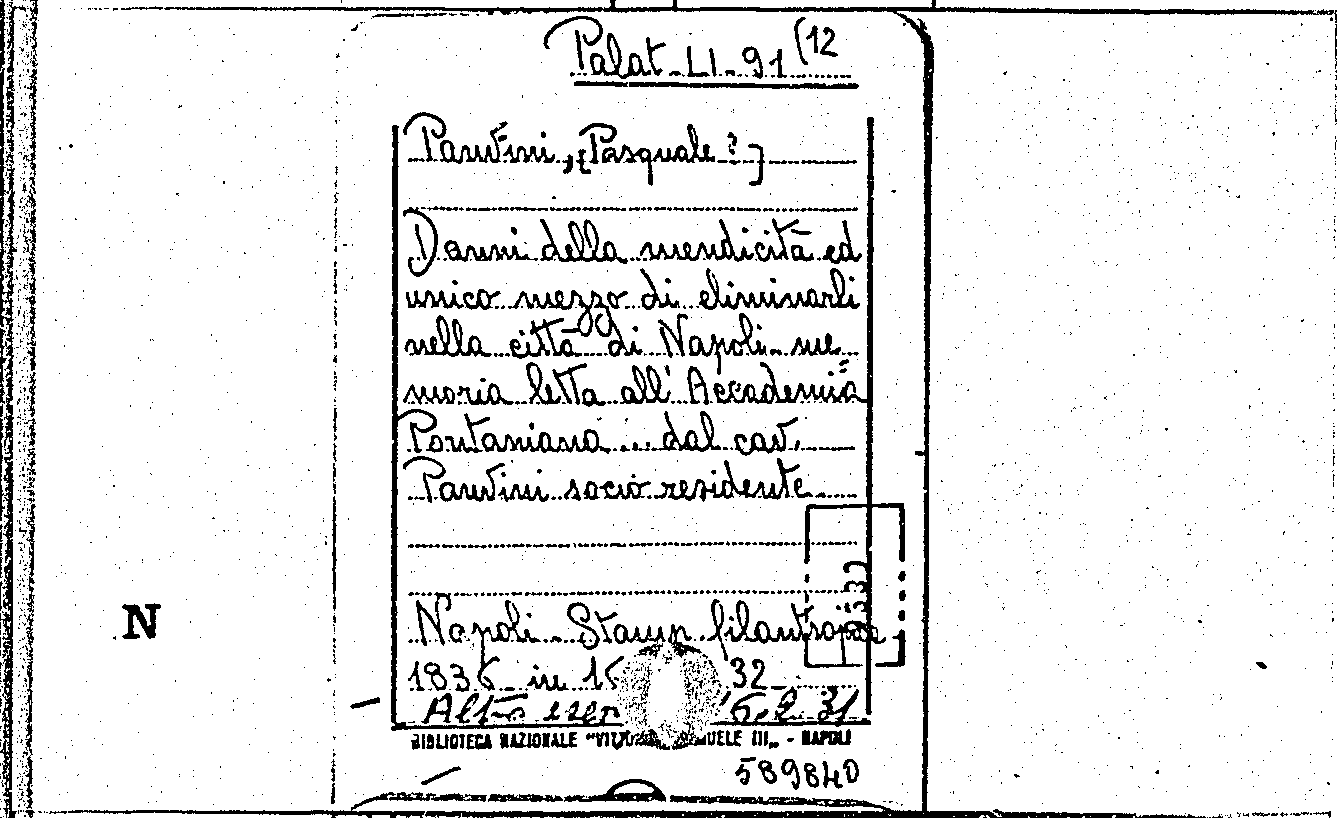 Palat. LI. 91 (12
Panvini, [Pasquale?]
Danni della mendicità ed
unico mezzo di eliminarli
nella città di Napoli. me=
moria letta all'Accademia
Pontaniana ... dal cav.
Panvini socio residente
N
Napoli. Stamp filantropica
1836 in 16 32
Altro
BIBLIOTECA NAZIONALE "VITTORIO EMANUELE III„ - NAPOLI
589840